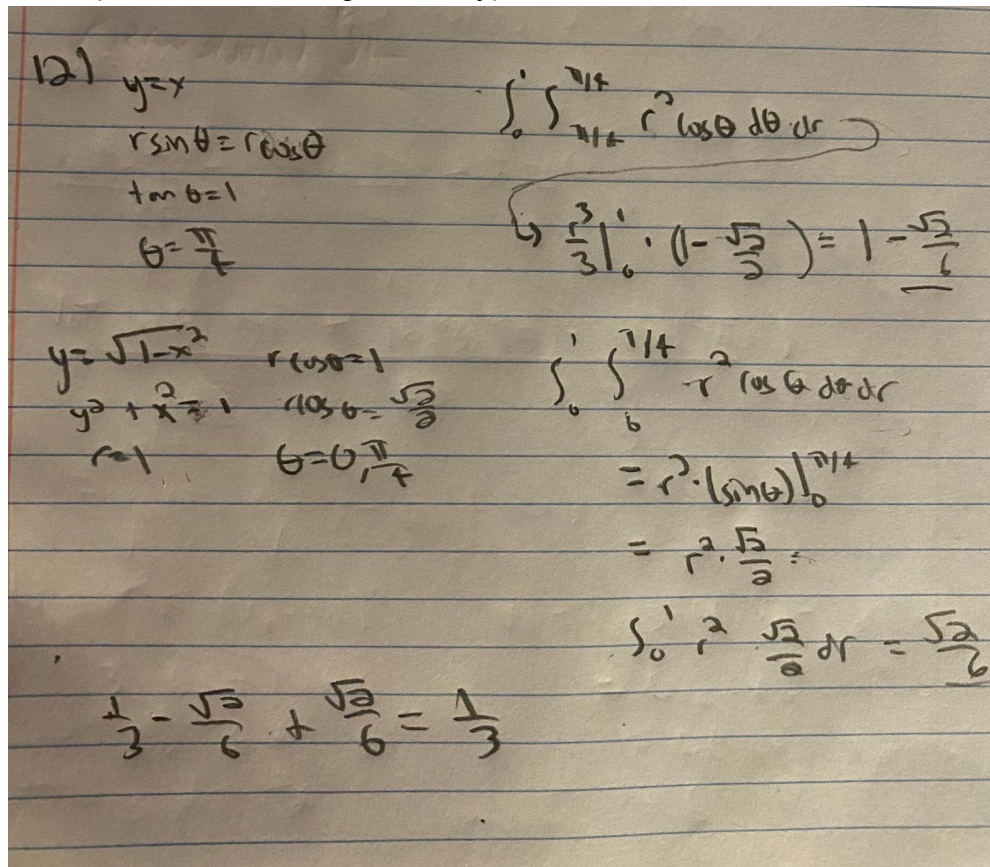 12)
y=x
r sin θ = r cos θ
tan θ = 1
θ = π/4
∫₀¹ ∫_{π/4}^{π/4} r² cos θ dθ dr
r³/3 |₀¹ · (1 - √2/2) = 1 - √2/6
y = √(1-x²)
y² + x² = 1
r=1
r cos θ = 1
cos θ = √2/2
θ = 0, π/4
∫₀¹ ∫₀^{π/4} r² cos θ dθ dr
= r² · (sin θ) |₀^{π/4}
= r² · √2/2 =
∫₀¹ r² √2/2 dr = √2/6
1/3 - √2/6 + √2/6 = 1/3